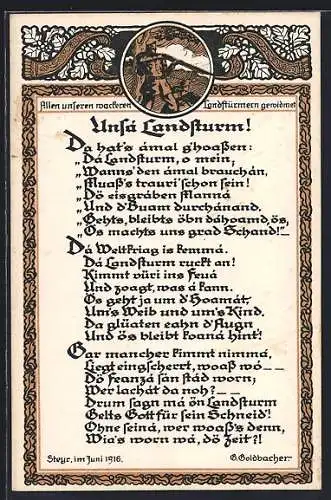 Allen unseren wackeren Landstürmern gewidmet
Unsá Landsturm!
Da hat's ámal g'hoaßen:
„Dá Landsturm, o mein,
„Wanns' den ámal brauchán,
„Muaß's trauri' schon sein!
„Dö eisgráben Manná
„Und d' Buam durchánand,
„Gehts, bleibts öbn dáhoamd, ös,
„Os machts uns grad Schand!"_
Dá Weltkriag is kemmá.
Dá Landsturm ruckt an!
Kimmt vüri ins Feuá
Und zoagt, was á kann.
Os geht ja um d' Hoamát,
Um's Weib und um's Kind.
Da glüaten eahn d' Augn
Und ös bleibt koaná hint'!
Gar mancher kimmt nimmá,
Liegt eing'scherrt, woaß wö _ _
Dö seanzá san stád worn;
Wer lachát da noh? _ _
Drum sagn má ön Landsturm
Gelts Gott für sein Schneid'!
Ohne seiná, wer woaß's denn,
Wia's worn wá, dö Zeit?!
Steyr, im Juni 1916. G. Goldbacher.